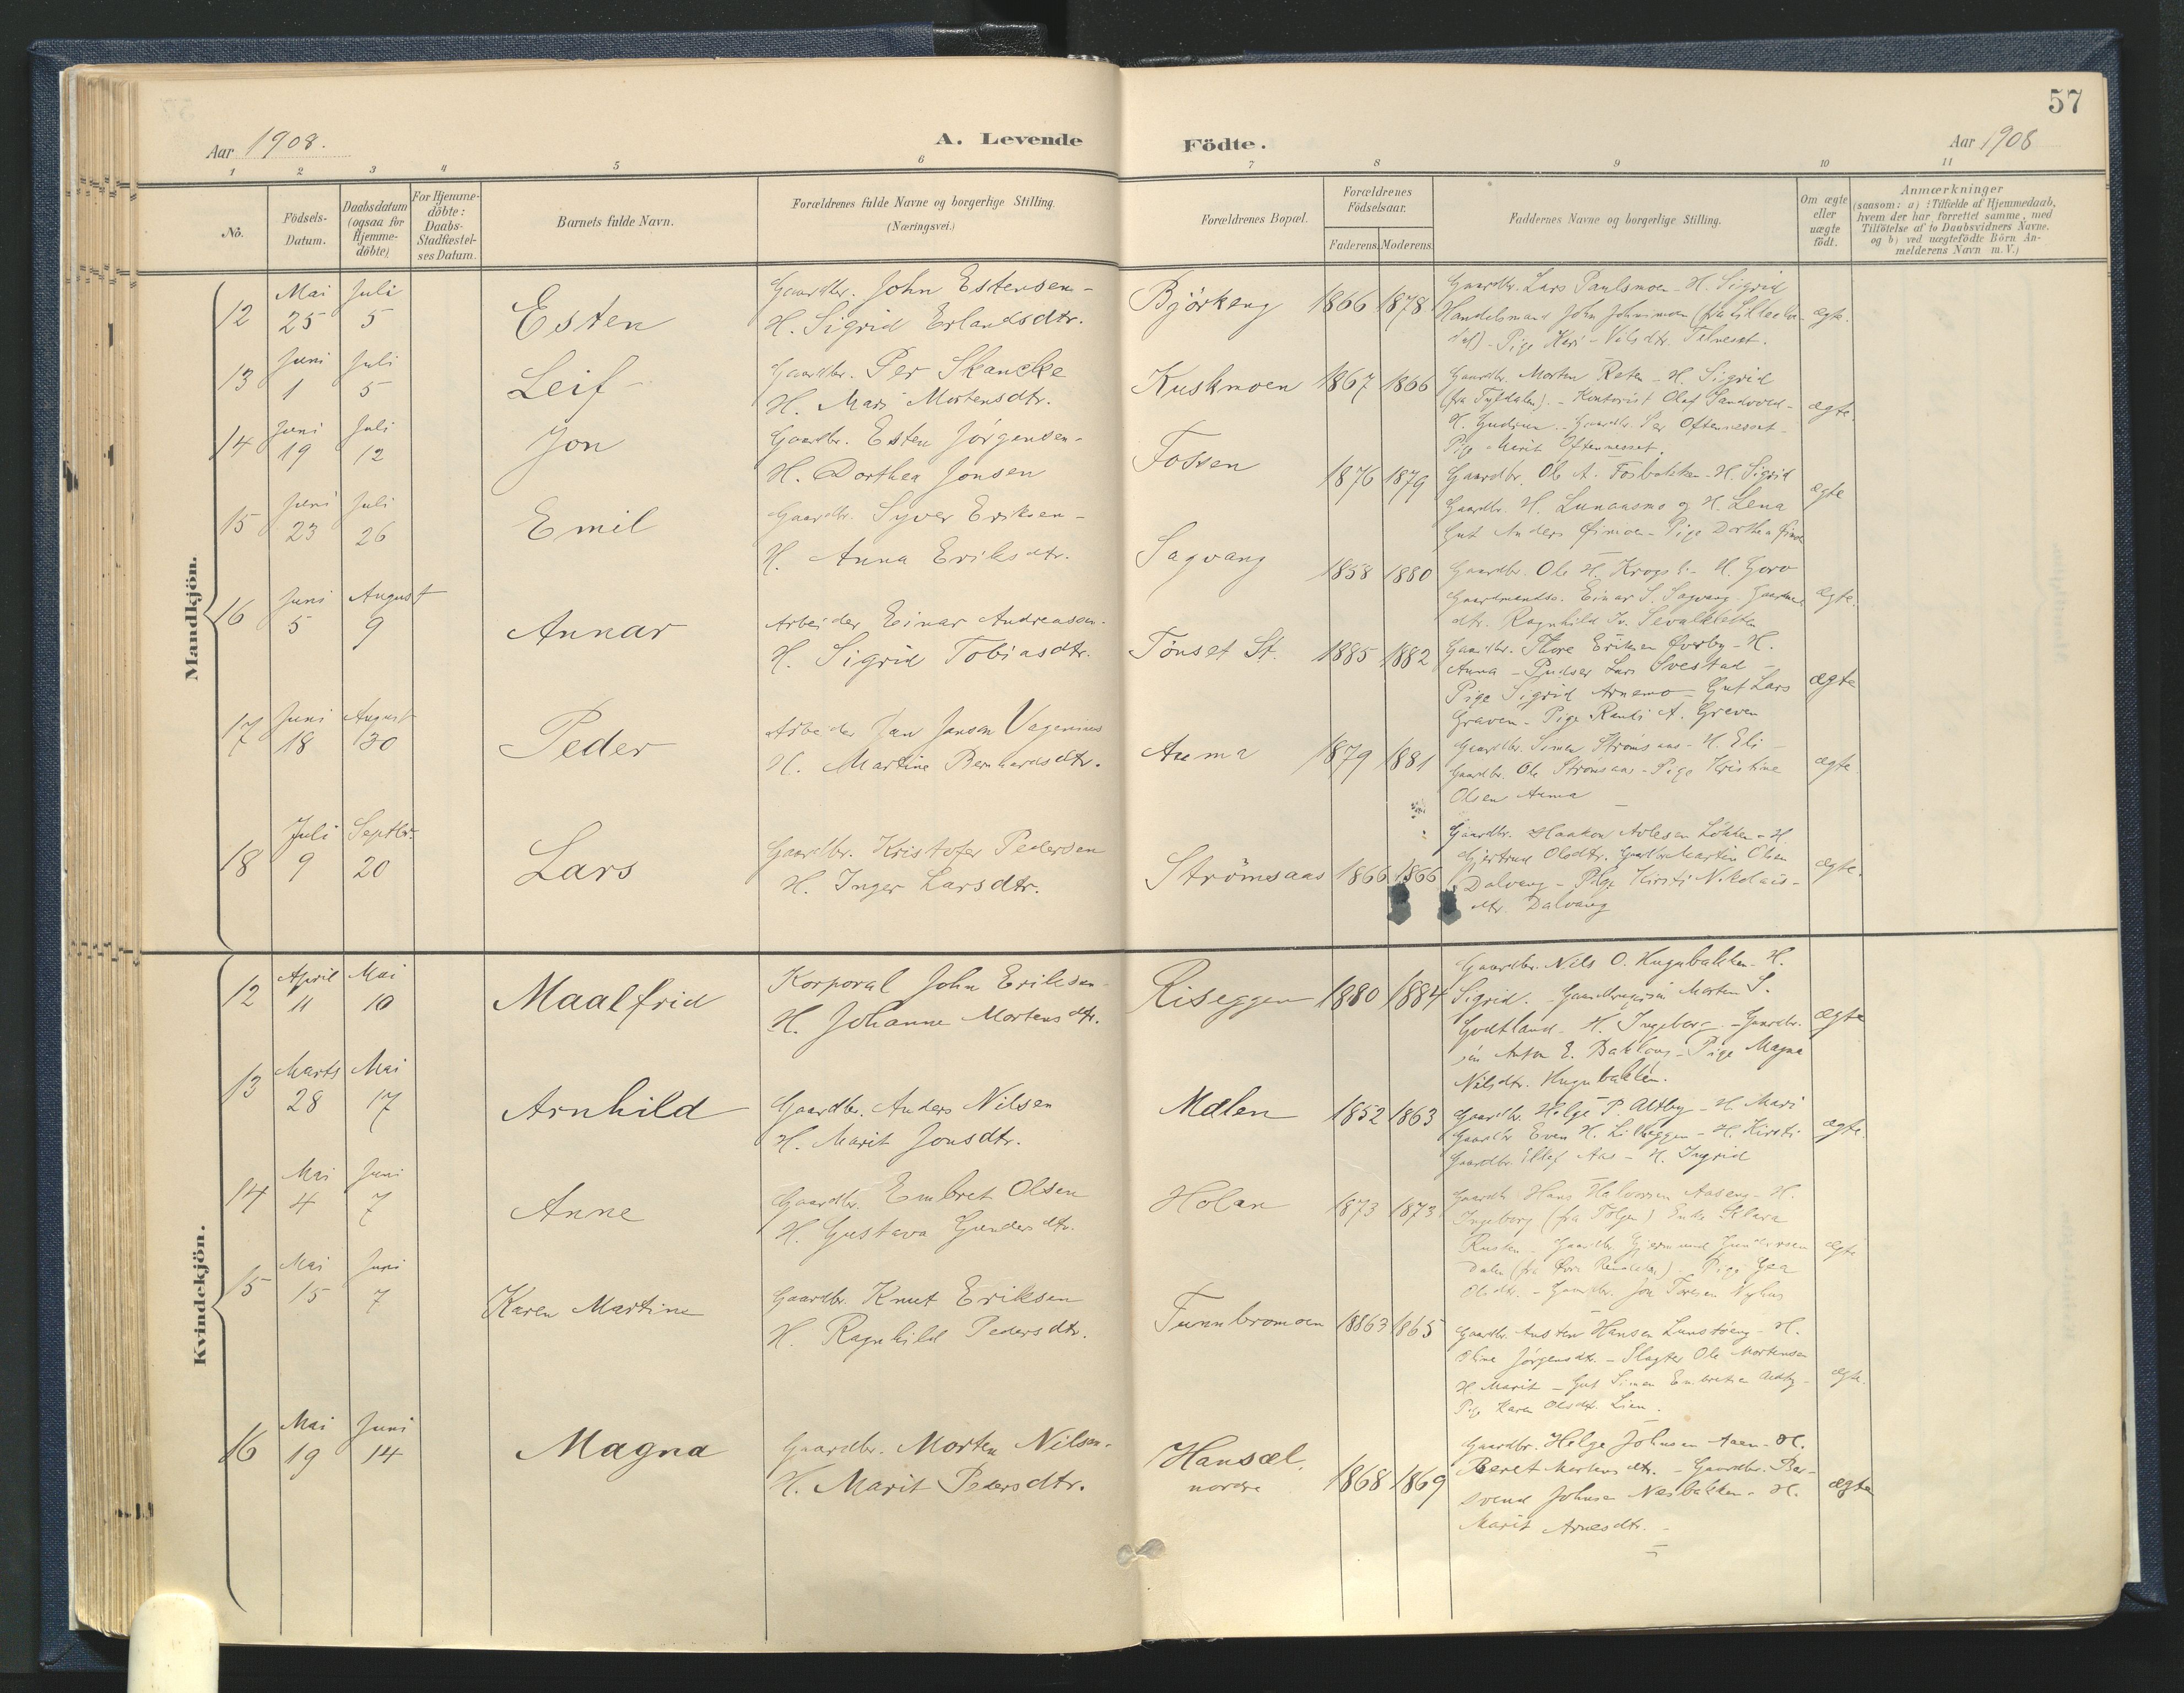 57
Aar 1908.
A. Levende Födte.
Aar 1908
1 2 3 4 5 6 7 8 9 10 11
No.
Födsels-Datum.
Daabsdatum (ogsaa for Hjemme-döbte)
For Hjemme-döbte: Daabs-Stadfæstel-ses Datum.
Barnets fulde Navn.
Forældrenes fulde Navne og borgerlige Stilling. (Næringsvei.)
Forældrenes Bopæl.
Forældrenes Födselsaar.
Faderens. Moderens.
Faddernes Navne og borgerlige Stilling.
Om ægte eller uægte födt.
Anmærkninger
(saasom: a) i Tilfælde af Hjemmedaab,
hvem der har forrettet samme, med
Tilföielse af to Daabsvidners Navne,
og b) ved uægtefödte Börn An-
melderens Navn m.V.)
Mandkjön.
12 Mai 25 Juli 5 Esten
Gaardbr. John Estensen -
H. Sigrid Erlandsdtr.
Björkeng 1866 1878
Gaardbr. Lars Paulsmoen - H. Sigrid
Handelsmand John
Pige Kari
ægte.
13 Juni 1 Juli 5 Leif
Gaardbr. Per Skancke
H. Mari Mortensdtr.
Kuskmoen 1867 1866
Gaardbr. Morten Røten - H. Sigrid
(fra Tyldalen). - Kontorist Olaf Sandvold -
H. Gudrun. - Gaardbr. Per Oftennesset -
Pige Marit Oftennesset.
ægte.
14 Juni 19 Juli 12 Jon
Gaardbr. Esten Jörgensen -
H. Dorthea Jonsen
Fossen 1876 1879
Gaardbr. Ole A. Fosbakken - H. Sigrid
Gaardbr. H. Lunaasmo og H. Lena
Gut Anders Öimoen - Pige Dorthea
ægte
15 Juni 23 Juli 26 Emil
Gaardbr. Syver Eriksen -
H. Anna Eriksdtr.
Sagvang 1858 1880
Gaardbr. Ole H. - H. Goro
Gaardmands. Einar S. Sagvang.
dtr. Ragnhild
ægte.
16 Juni 5 August 9 Annar
Arbeider Einar Andreassen.
H. Sigrid Tobiasdtr.
Tönset St. 1885 1882
Gaardbr. Thore Eriksen Øverby - H.
Anna - Pudser Lars Svestad -
Pige Sigrid Arnemo - Gut Lars
Graven - Pige Randi A. Graven
ægte
17 Juni 18 August 30 Peder
Arbeider Jan Janson Vagenius
H. Martine Bernhardsdtr.
Auma 1879 1881
Gaardbr. Simen Strömsaas - H. Eli -
Gaardbr. Ole Strömsaas - Pige Kristine
Olsen Auma
ægte
18 Juli 9 Septbr. 20 Lars
Gaardbr. Kristofer Pedersen
H. Inger Larsdtr.
Strömsaas 1866 1866
Gaardbr. Haakon Avlesen Løkken - H.
Gjertrud Olsdtr. Gaardbr. Martin Olsen
Dalvang - Pige Kirsti Nikolais-
dtr. Dalvang
ægte.
Kvindekjön.
12 April 11 Mai 10 Maalfrid
Korporal John Eriksen -
H. Johanne Mortensdtr.
Riseggen 1880 1884
Gaardbr. Nils O. Hugubakken - H.
Sigrid. - Morten S.
Godtland - H. Ingeborg - Gaardbr.
sön Anton E. Bakløng - Pige Magna
Nilsdtr. Hugubakken.
ægte
13 Marts 28 Mai 17 Arnhild
Gaardbr. Anders Nilsen
H. Marit Jonsdtr.
Mælen 1852 1863
Gaardbr. Helge P. Aldtby - H. Mari
Gaardbr. Even H. Lilleeggen - H. Kirsti
Gaardbr. Ellef Aas - H. Ingrid
ægte.
14 Mai 4 Juni 7 Anne
Gaardbr. Embret Olsen
H. Gustava Gundersdtr.
Holan 1873 1873
Gaardbr. Hans Halvorsen Aaseng - H.
Ingeborg (fra Tolgen) Enke Klara
Rusten - Gaardbr. Gjermund Gundersen
Dalen (fra Øvre Rendalen). Pige Gea
Olsdtr. - Gaardbr. Jon Toresen Nyhus
ægte
15 Mai 15 Juni 7 Karen Martine
Gaardbr. Knut Eriksen
H. Ragnhild Pedersdtr.
Tunnbromoen 18863 1865
Gaardbr. Austen Hansen - H.
Oline Jörgensdtr. - Slagter Ole Mortensen
H. Marit - Gut Simen Embretsen Aldtby -
Pige Karen Olsdtr. Lien.
ægte.
16 Mai 19 Juni 14 Magna
Gaardbr. Morten Nilsen.
H. Marit Pedersdtr.
Hansæl. nordre 1868 1869
Gaardbr. Helge Johnsen Aaen - H.
Beret Mortensdtr. - Gaardbr. Ber-
svend Johnsen Næsbakken - H.
Marit Arnesdtr. -
ægte